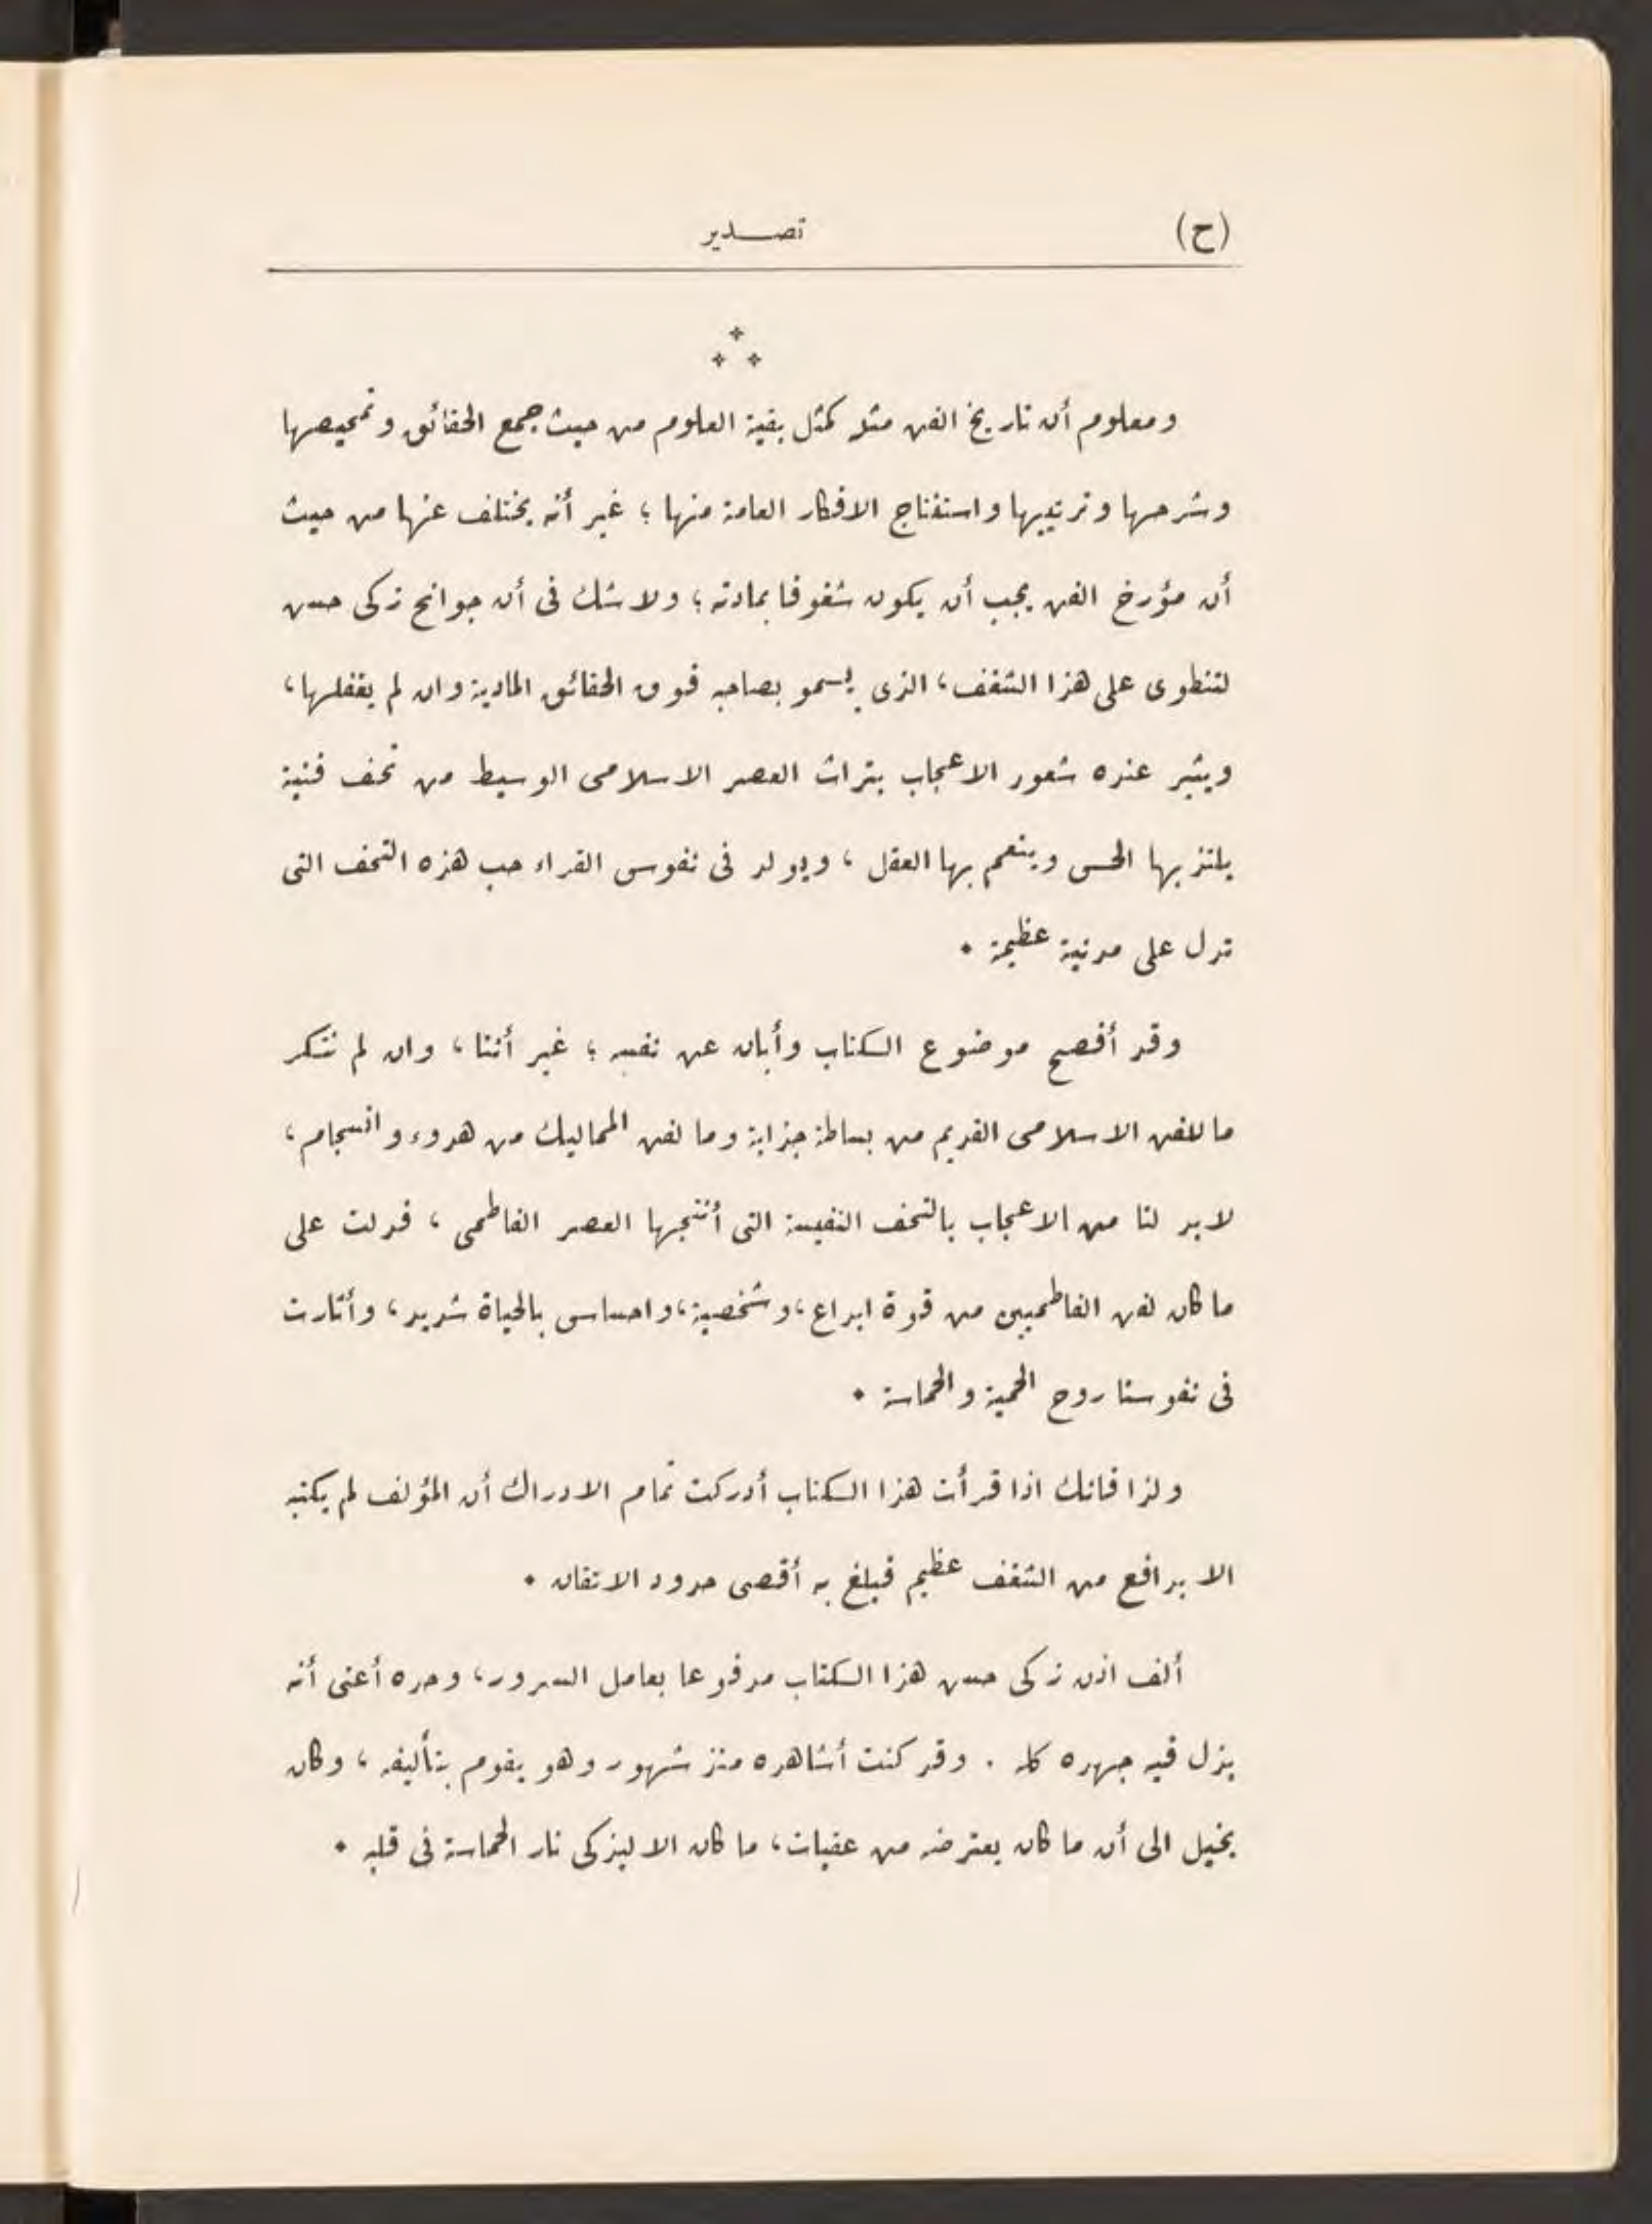 (ح)
تصدير
ومعلوم أن تاريخ الفن مثله كمثل بقية العلوم من حيث جمع الحقائق وتمحيصها
وشرحها وترتيبها واستنتاج الافكار العامة منها ؛ غير أنه يختلف عنها من حيث
أن مؤرخ الفن يجب أن يكون شغوفا بمادته ؛ ولا شك فى أن جوانح زكى حسن
لتنطوى على هذا الشغف ، الذى يسمو بصاحبه فوق الحقائق المادية وان لم يغفلها ،
ويثير عنده شعور الاعجاب بتراث العصر الاسلامى الوسيط من تحف فنية
يلتذ بها الحس وينعم بها العقل ، ويولد فى نفوس القراء حب هذه التحف التى
تدل على مدنية عظيمة .
وقد أفصح موضوع الكتاب وأبان عن نفسه ؛ غير أننا ، وان لم ننكر
ما للفن الاسلامى القديم من بساطة جذابة وما لفن المماليك من هدوء وانسجام ،
لا بد لنا من الاعجاب بالتحف النفيسة التى أنتجها العصر الفاطمى ، فدلت على
ما كان لفن الفاطميين من قوة ابداع ، وشخصية ، واحساس بالحياة شديد ، وأثارت
فى نفوسنا روح الحمية والحماسة .
ولذا فانك اذا قرأت هذا الكتاب أدركت تمام الادراك أن المؤلف لم يكتبه
الا بدافع من الشغف عظيم فبلغ به أقصى حدود الاتقان .
ألف اذن زكى حسن هذا الكتاب مدفوعا بعامل السرور ، وحده أعنى أنه
بذل فيه جهده كله . وقد كنت أشاهده منذ شهور وهو يقوم بتأليفه ، وكان
يخيل الى أن ما كان يعترضه من عقبات ، ما كان الا ليذكى نار الحماسة فى قلبه .